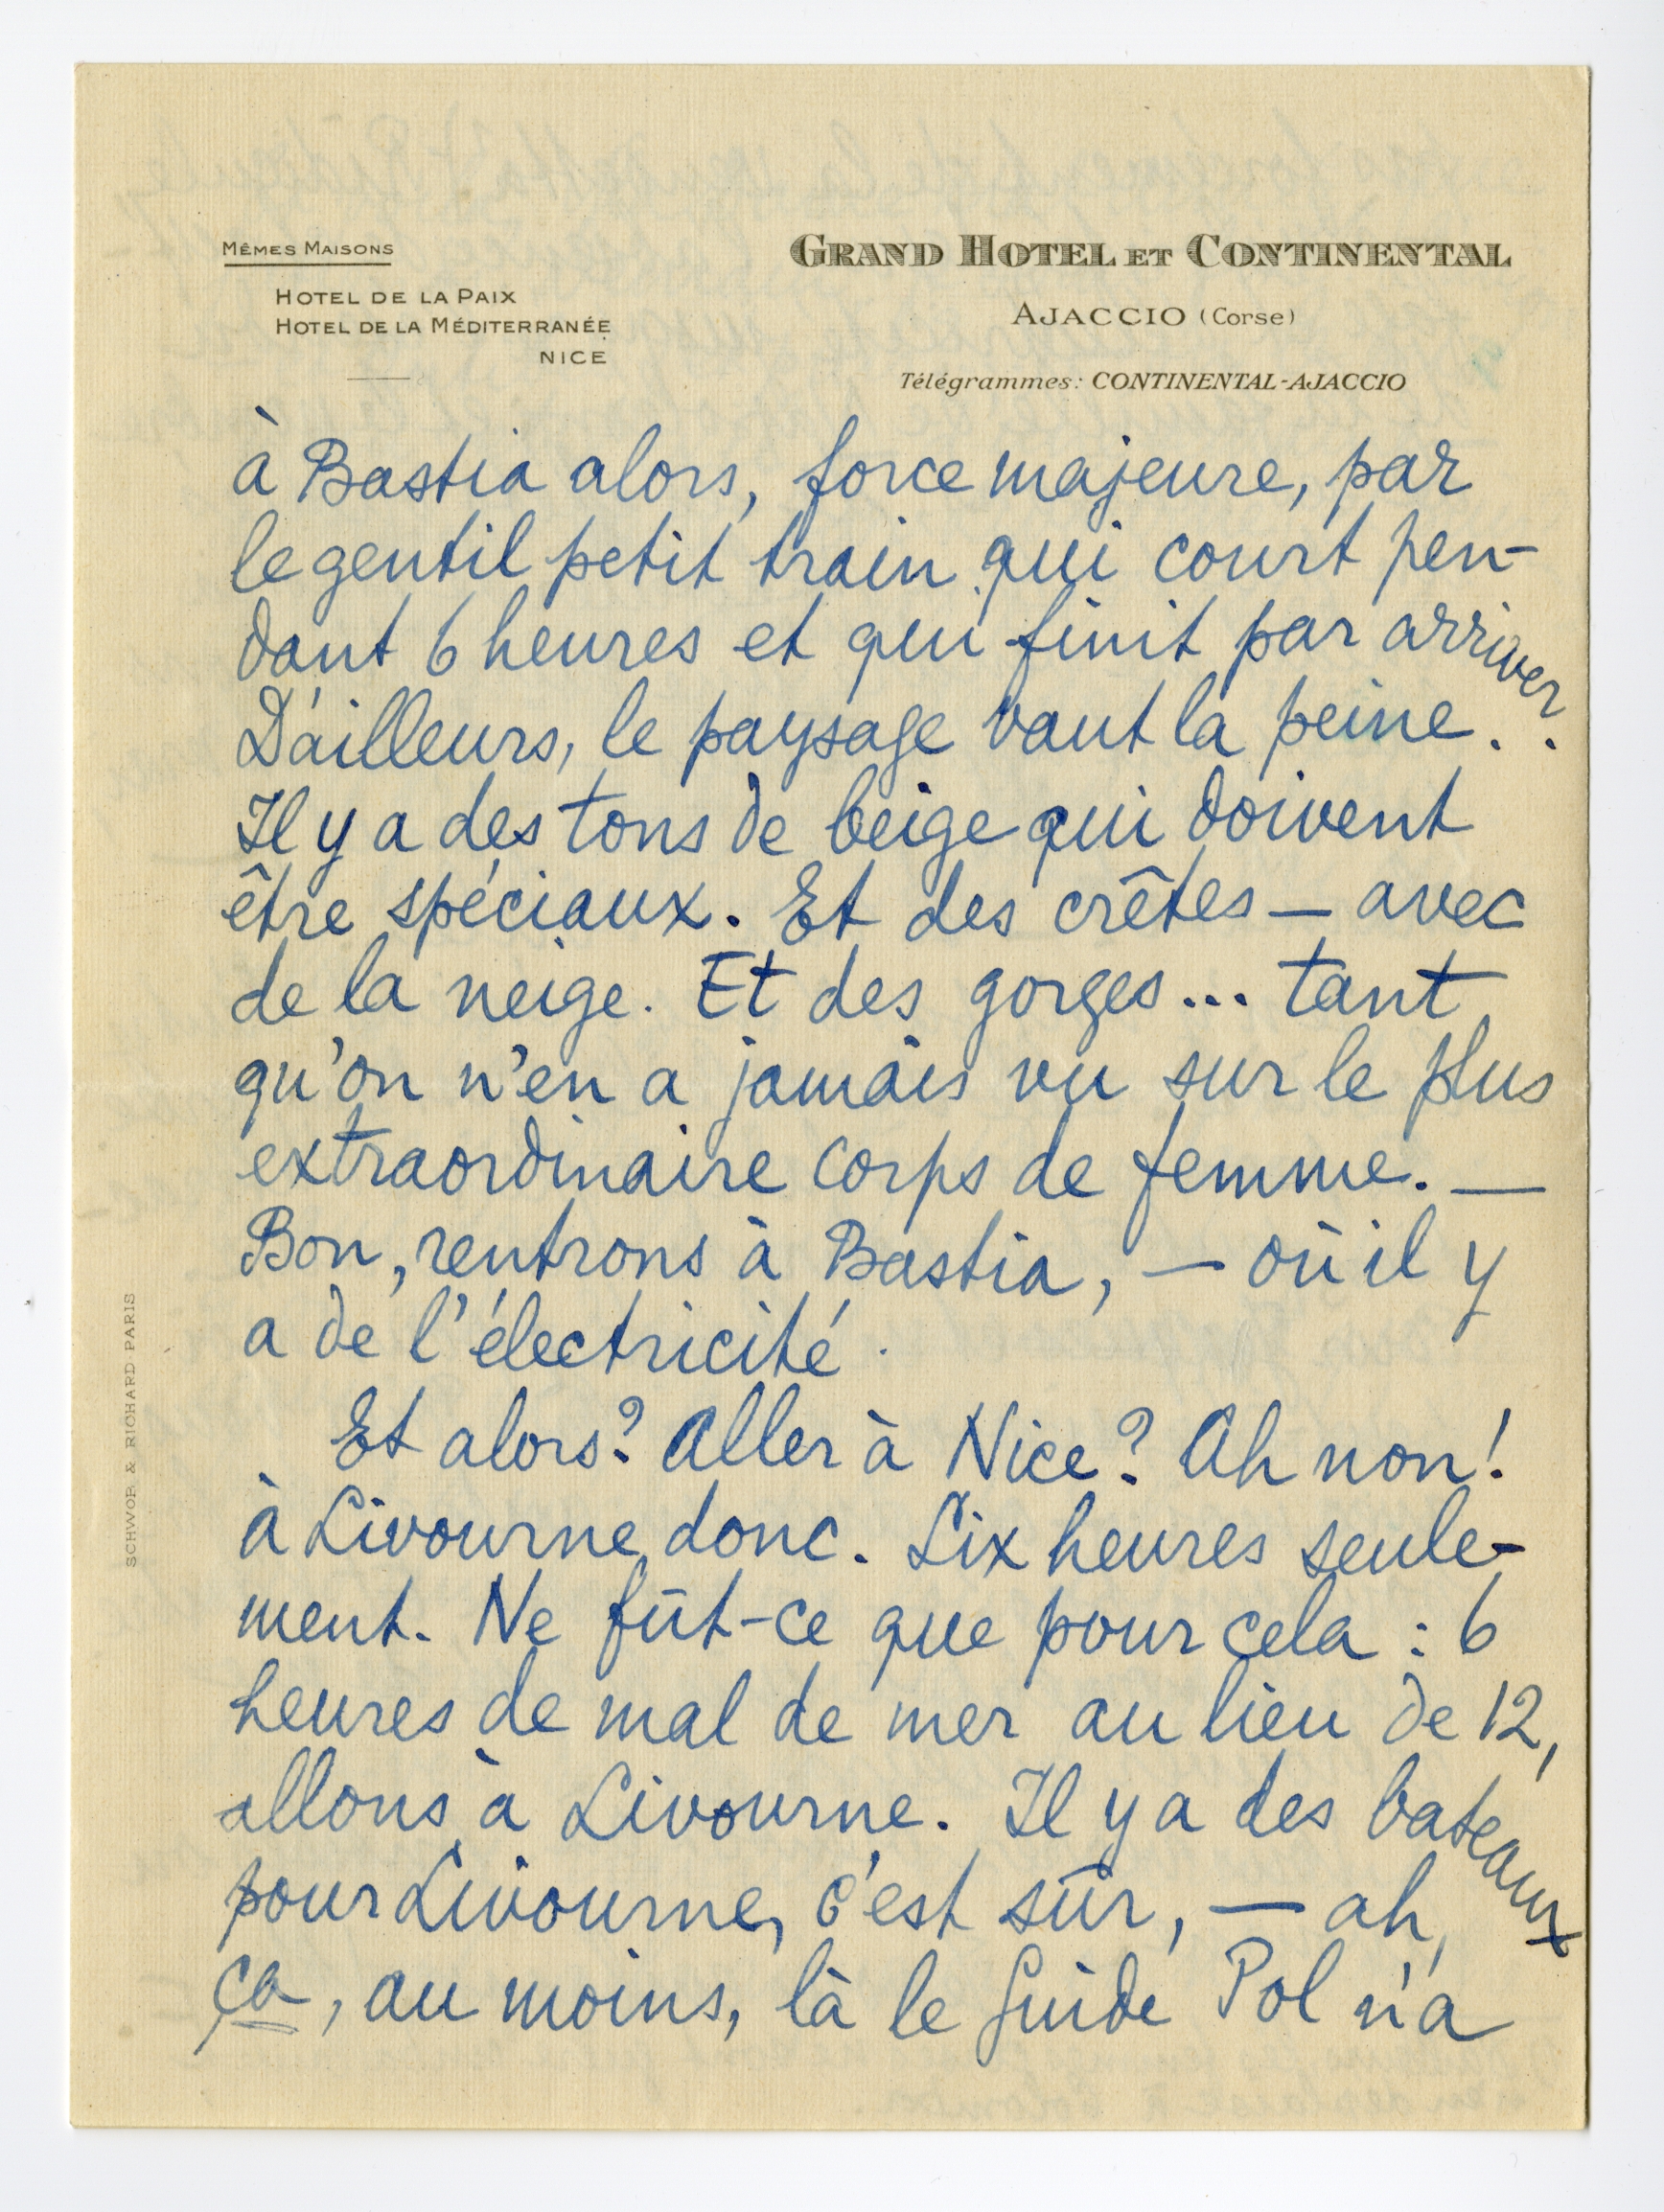 MÊMES MAISONS
HOTEL DE LA PAIX
HOTEL DE LA MÉDITERRANÉE
NICE
GRAND HOTEL ET CONTINENTAL
AJACCIO (Corse)
Télégrammes: CONTINENTAL-AJACCIO
à Bastia alors, force majeure, par
le gentil petit train qui court pen-
dant 6 heures et qui finit par arriver.
D'ailleurs, le paysage vaut la peine.
Il y a des tons de beige qui doivent
être spéciaux. Et des crêtes — avec
de la neige. Et des gorges... tant
qu'on n'en a jamais vu sur le plus
extraordinaire corps de femme. —
Bon, rentrons à Bastia, — où il y
a de l'électricité.
Et alors? Aller à Nice? Ah non!
à Livourne donc. Six heures seule-
ment. Ne fût-ce que pour cela : 6
heures de mal de mer au lieu de 12,
allons à Livourne. Il y a des bateaux
pour Livourne, c'est sûr, — ah,
ça, au moins, là le Guide Pol n'a
SCHWOB & RICHARD PARIS